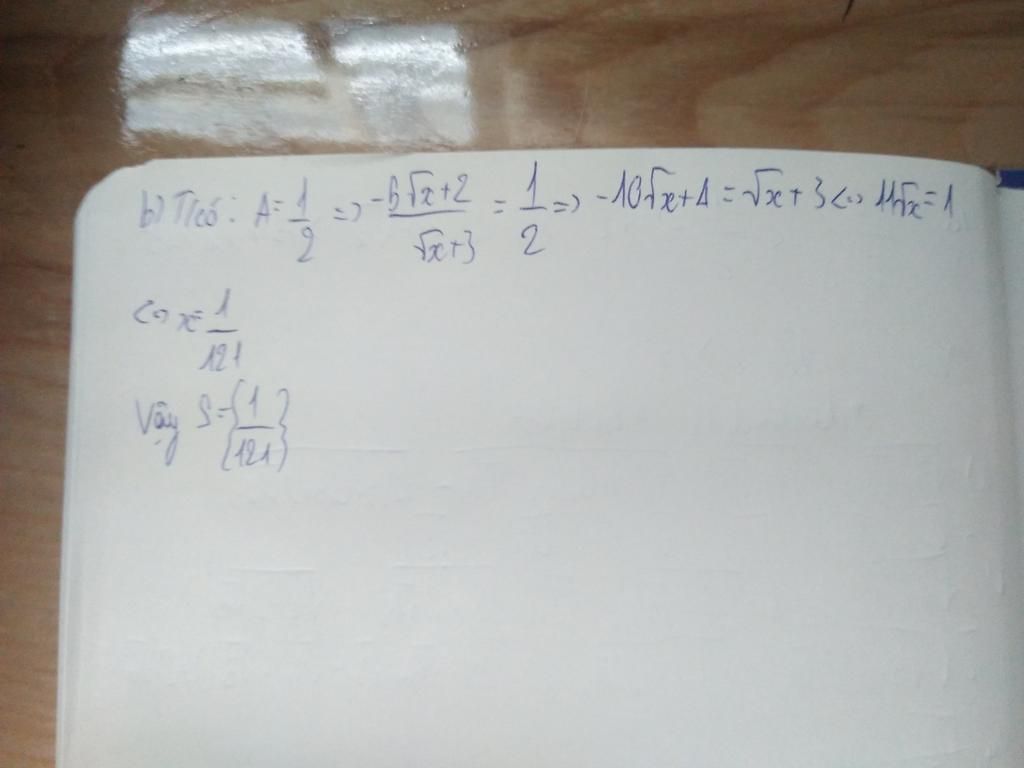 b) Ta có: A = 1/2 => -5√x+2/√x+3 = 1/2 => -10√x+4 = √x+3 <=> 11√x = 1
<=> x = 1/121
Vậy S = {1/121}